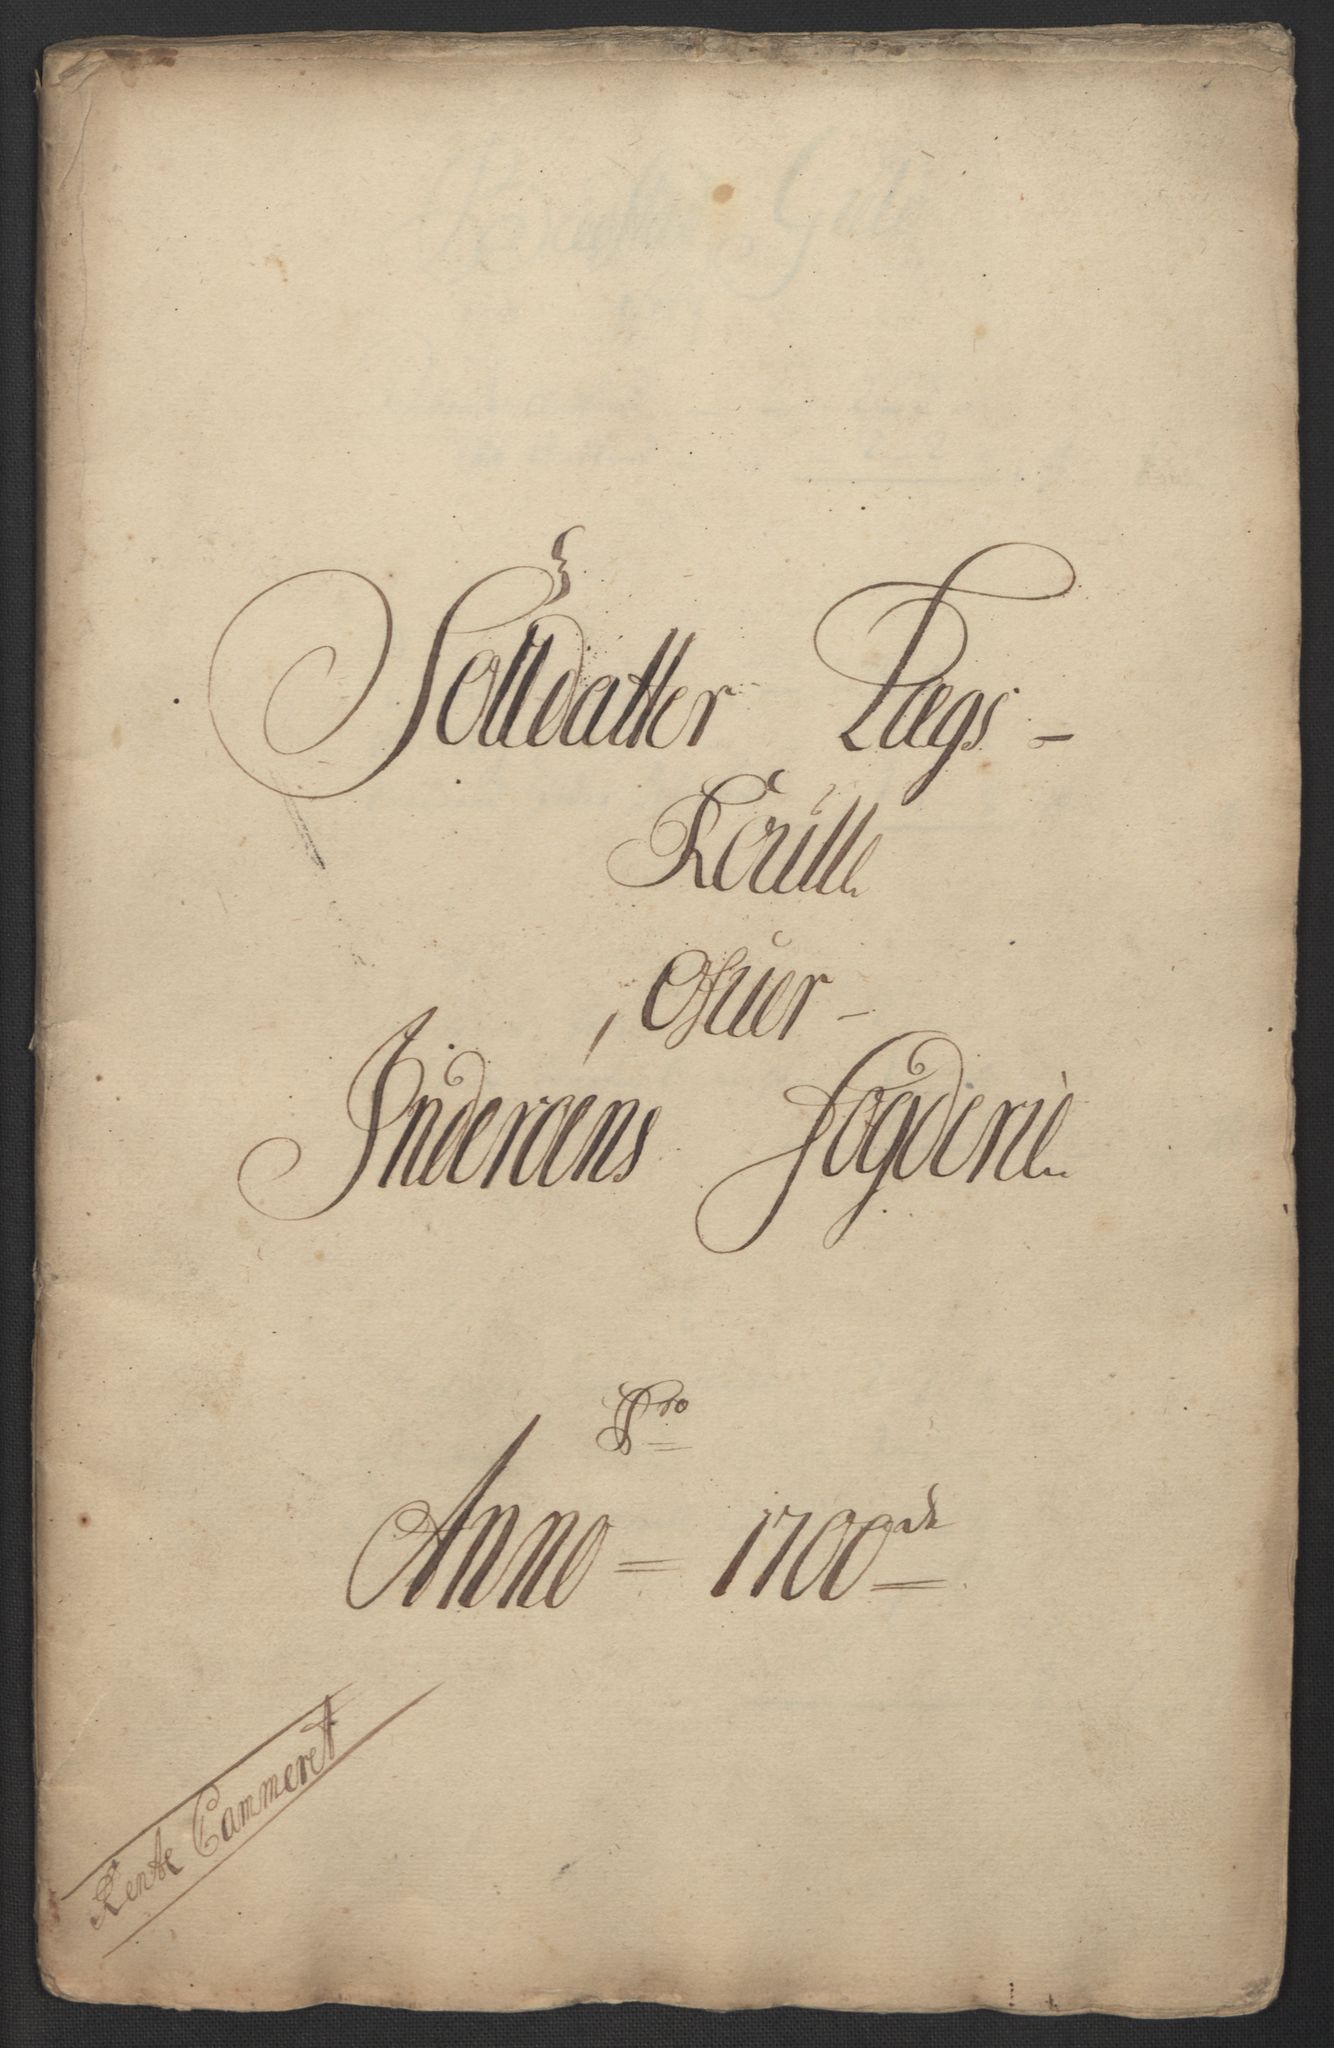 Solldatter Lægs -
Roulle
Ofuer -
Inderøens Fogderie
Pro
Anno = 1700de
Rente Cammeret